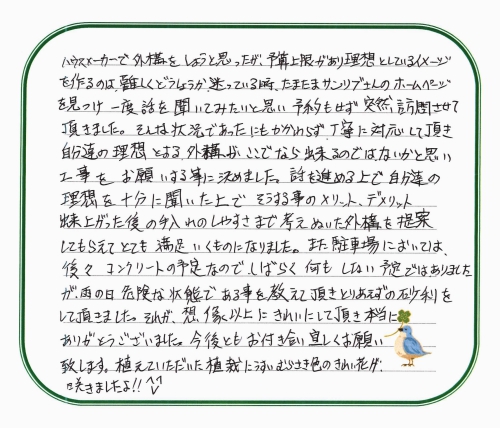 ハウスメーカーで外構をしようと思ったが、予算上限があり理想としているイメージ
を作るのは、難しくどうしようか迷っている時、たまたまサンリブさんのホームページ
を見つけ一度話を聞いてみたいと思い予約もせず突然訪問させて
頂きました。そんな状況であったにもかかわらず、丁寧に対応して頂き
自分達の理想とする外構がここでなら出来るのではないかと思い
工事をお願いする事に決めました。話を進める上で自分達の
理想を十分に聞いた上でそうする事のメリット、デメリット
出来上がった後の手入れのしやすさまで考えぬいた外構を提案
してもらえてとても満足いくものになりました。また駐車場においては、
後々コンクリートの予定なのでしばらく何もしない予定ではありました
が、雨の日危険な状態である事を教えて頂きとりあえずの砂利を
して頂きました。それが、想像以上にきれいにして頂き本当に
ありがとうございました。今後ともお付き合い宜しくお願い
致します。植えていただいた植栽にうすいむらさき色のきれい花が、
咲きましたよ!!^^